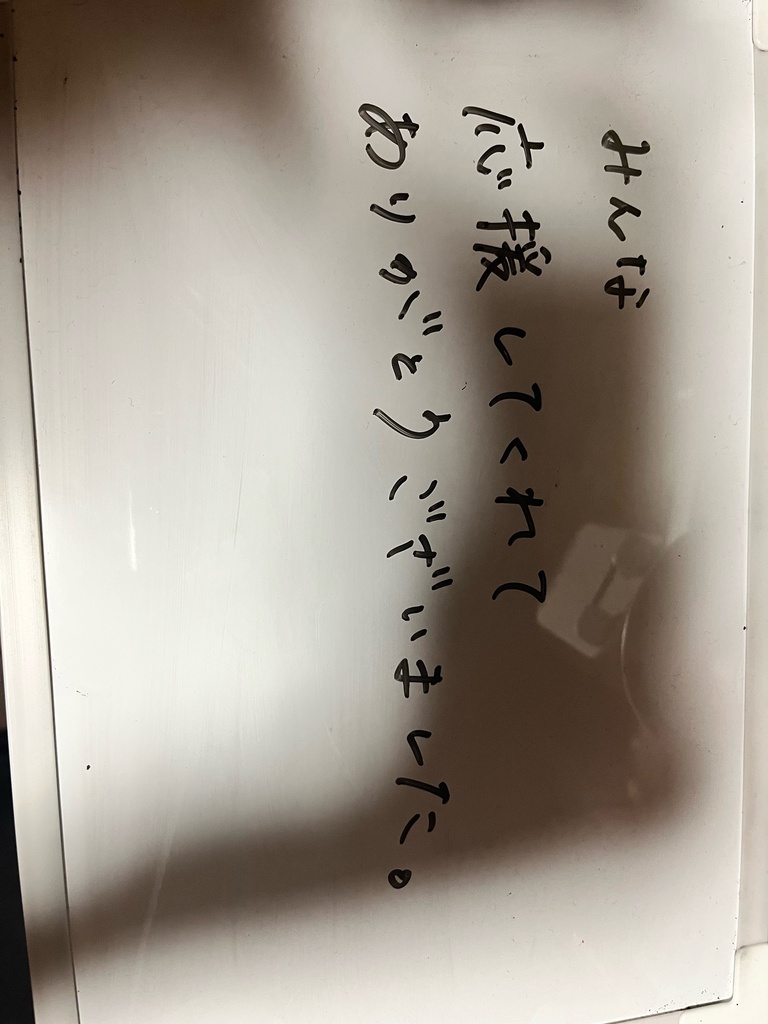 みんな
応援してくれて
ありがとうございました。